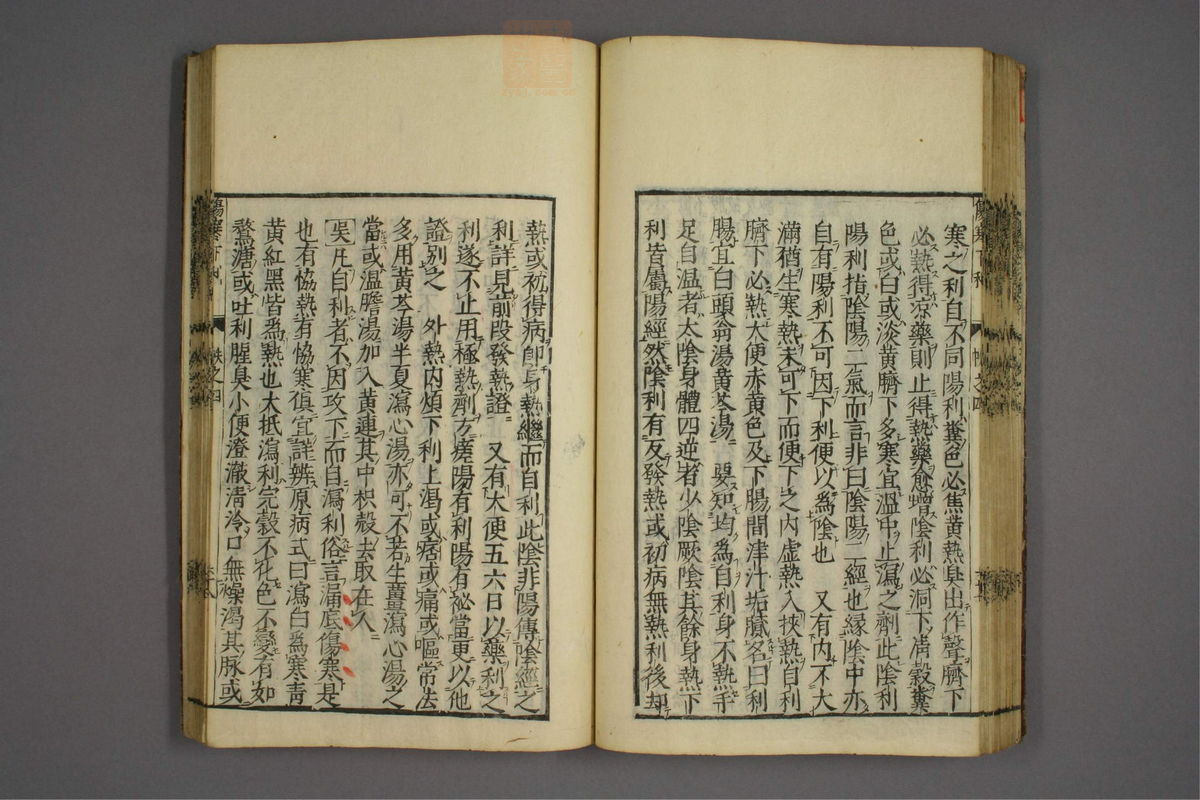 寒之利自不同陽利糞色必焦黃熱臭出作聲臍下
必熱得凉藥則止得熱藥愈增陰利必洞下清穀糞
色或白或淡黃臍下多寒宜溫中止瀉之劑此陰利
陽利指陰陽二氣而言非曰陰陽二經也縁陰中亦
自有陽利不可因下利便以爲陰也　又有内不大
滿猶生寒熱未可下而便下之内虛熱入挾熱自利
臍下必熱大便赤黃色及下腸間津汁垢膩名曰利
腸宜白頭翁湯黃芩湯　要知均爲自利身不熱手
足自溫者太陰身體四逆者少陰厥陰其餘身熱下
利皆屬陽經然陰利有反發熱或初病無熱利後却
熱或初得病卽身熱繼而自利此陰非陽傳陰經之
利詳見前段發熱證　又有大便五六日以藥利之
利遂不止用極熱劑方瘥陽有利陽有祕當更以他
證別之　外熱内煩下利上渴或痞或痛或嘔常法
多用黃芩湯半夏瀉心湯亦可不若生薑瀉心湯之
當或溫膽湯加入黃連其中枳殼去取在人
吳凡自利者不因攻下而自瀉利俗言漏底傷寒是
也有恊熱有恊寒俱宜詳辨原病式曰瀉白爲寒靑
黃紅黑皆爲熱也大抵瀉利完穀不化色不變有如
鶩溏或吐利腥臭小便澄澈淸冷口無燥渴其脉或
傷寒下利　帙之四